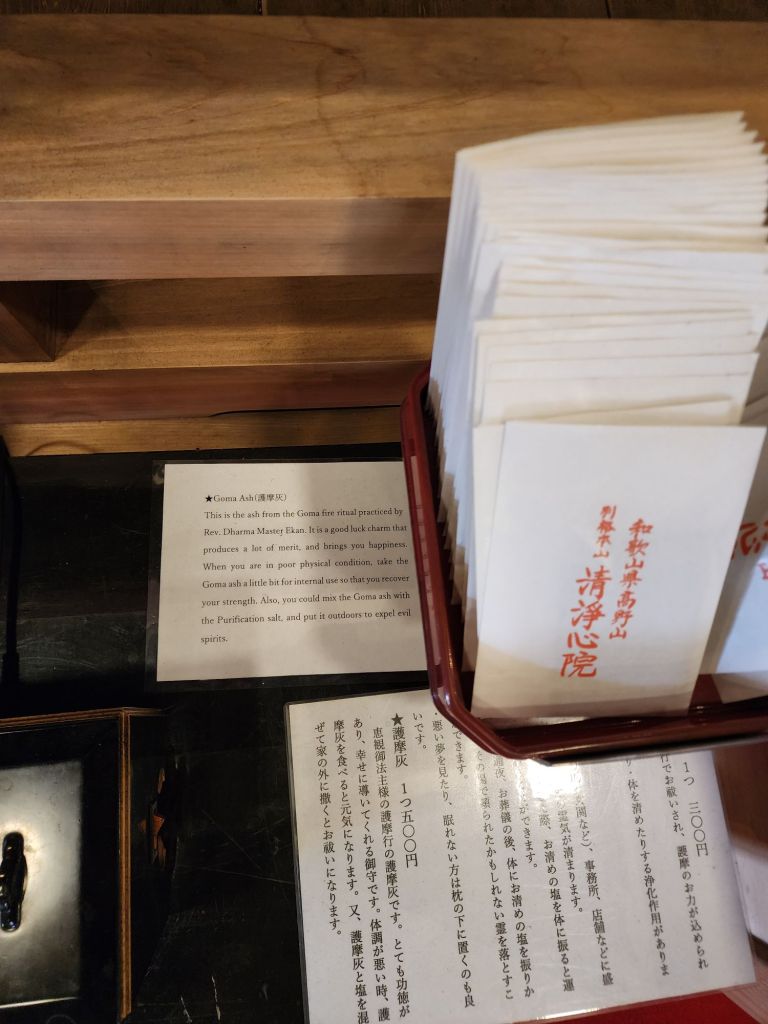 ★Goma Ash(護摩灰)
This is the ash from the Goma fire ritual practiced by
Rev. Dharma Master Ekan. It is a good luck charm that
produces a lot of merit, and brings you happiness.
When you are in poor physical condition, take the
Goma ash a little bit for internal use so that you recover
your strength. Also, you could mix the Goma ash with
the Purification salt, and put it outdoors to expel evil
spirits.
和歌山県高野山
別格本山
清浄心院
1つ 三〇〇円
行でお祓いされ、護摩のお力が込められ
り・体を清めたりする浄化作用がありま
関など)、事務所、店舗などに盛
霊気が清まります。
際、お清めの塩を体に振ると運
ができます。
通夜、お葬儀の後、体にお清めの塩を振りか
その場で頼られたかもしれない霊を落とすこ
できます。
悪い夢を見たり、眠れない方は枕の下に置くのも良
いです。
★護摩灰 1つ五〇〇円
恵観御法主様の護摩行の護摩灰です。とても功徳が
あり、幸せに導いてくれる御守です。体調が悪い時、護
摩灰を食べると元気になります。又、護摩灰と塩を混
ぜて家の外に撒くとお祓いになります。